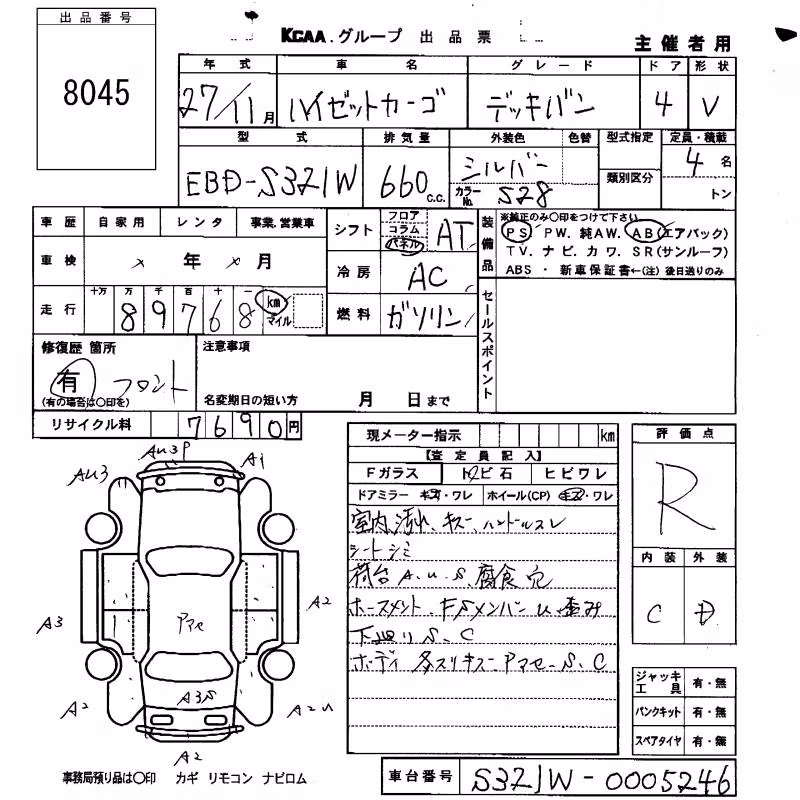 出品番号
8045
KCAA.グループ 出品票
主催者用
年式 車名 グレード ドア 形状
27/11月 ハイゼットカーゴ デッキバン 4 V
型式 排気量 外装色 色替 型式指定 定員・積載
EBD-S321W 660 c.c. シルバー 4 名
カラーNo. S28 類別区分 トン
車歴 自家用 レンタ 事業、営業車
シフト フロア コラム パネル AT
装備品
※純正のみ〇印をつけて下さい
PS PW. 純AW. AB(エアバック)
TV. ナビ. カワ. SR(サンルーフ)
ABS ・ 新車保証書←(注) 後日送りのみ
車検 × 年 × 月
冷房 AC
走行 十万 万 千 百 十 一
89768 km マイル
燃料 ガソリン
セールスポイント
修復歴 箇所
有 フロント
(有の場合は〇印を)
注意事項
名変期日の短い方 月 日まで
リサイクル料 7690円
現メーター指示 km
【査定員記入】
Fガラス トビ石 ヒビワレ
ドアミラー キズ・ワレ ホイール(CP) キズ・ワレ
室内 汚れ、キズ、ハンドルスレ
シートシミ
荷台 A.U.S.腐食穴
ホースメント.FSメンバーU.歪み
下廻りS.C
ボディ 各スリキズ.アマセ.S.C
評価点
R
内装 外装
C D
AU3P
AU3
A1
A3
アマセ
A2
A3S
A2
A2U
A2
ジャッキ工具 有・無
パンクキット 有・無
スペアタイヤ 有・無
事務局預り品は〇印 カギ リモコン ナビロム
車台番号 S321W-0005246